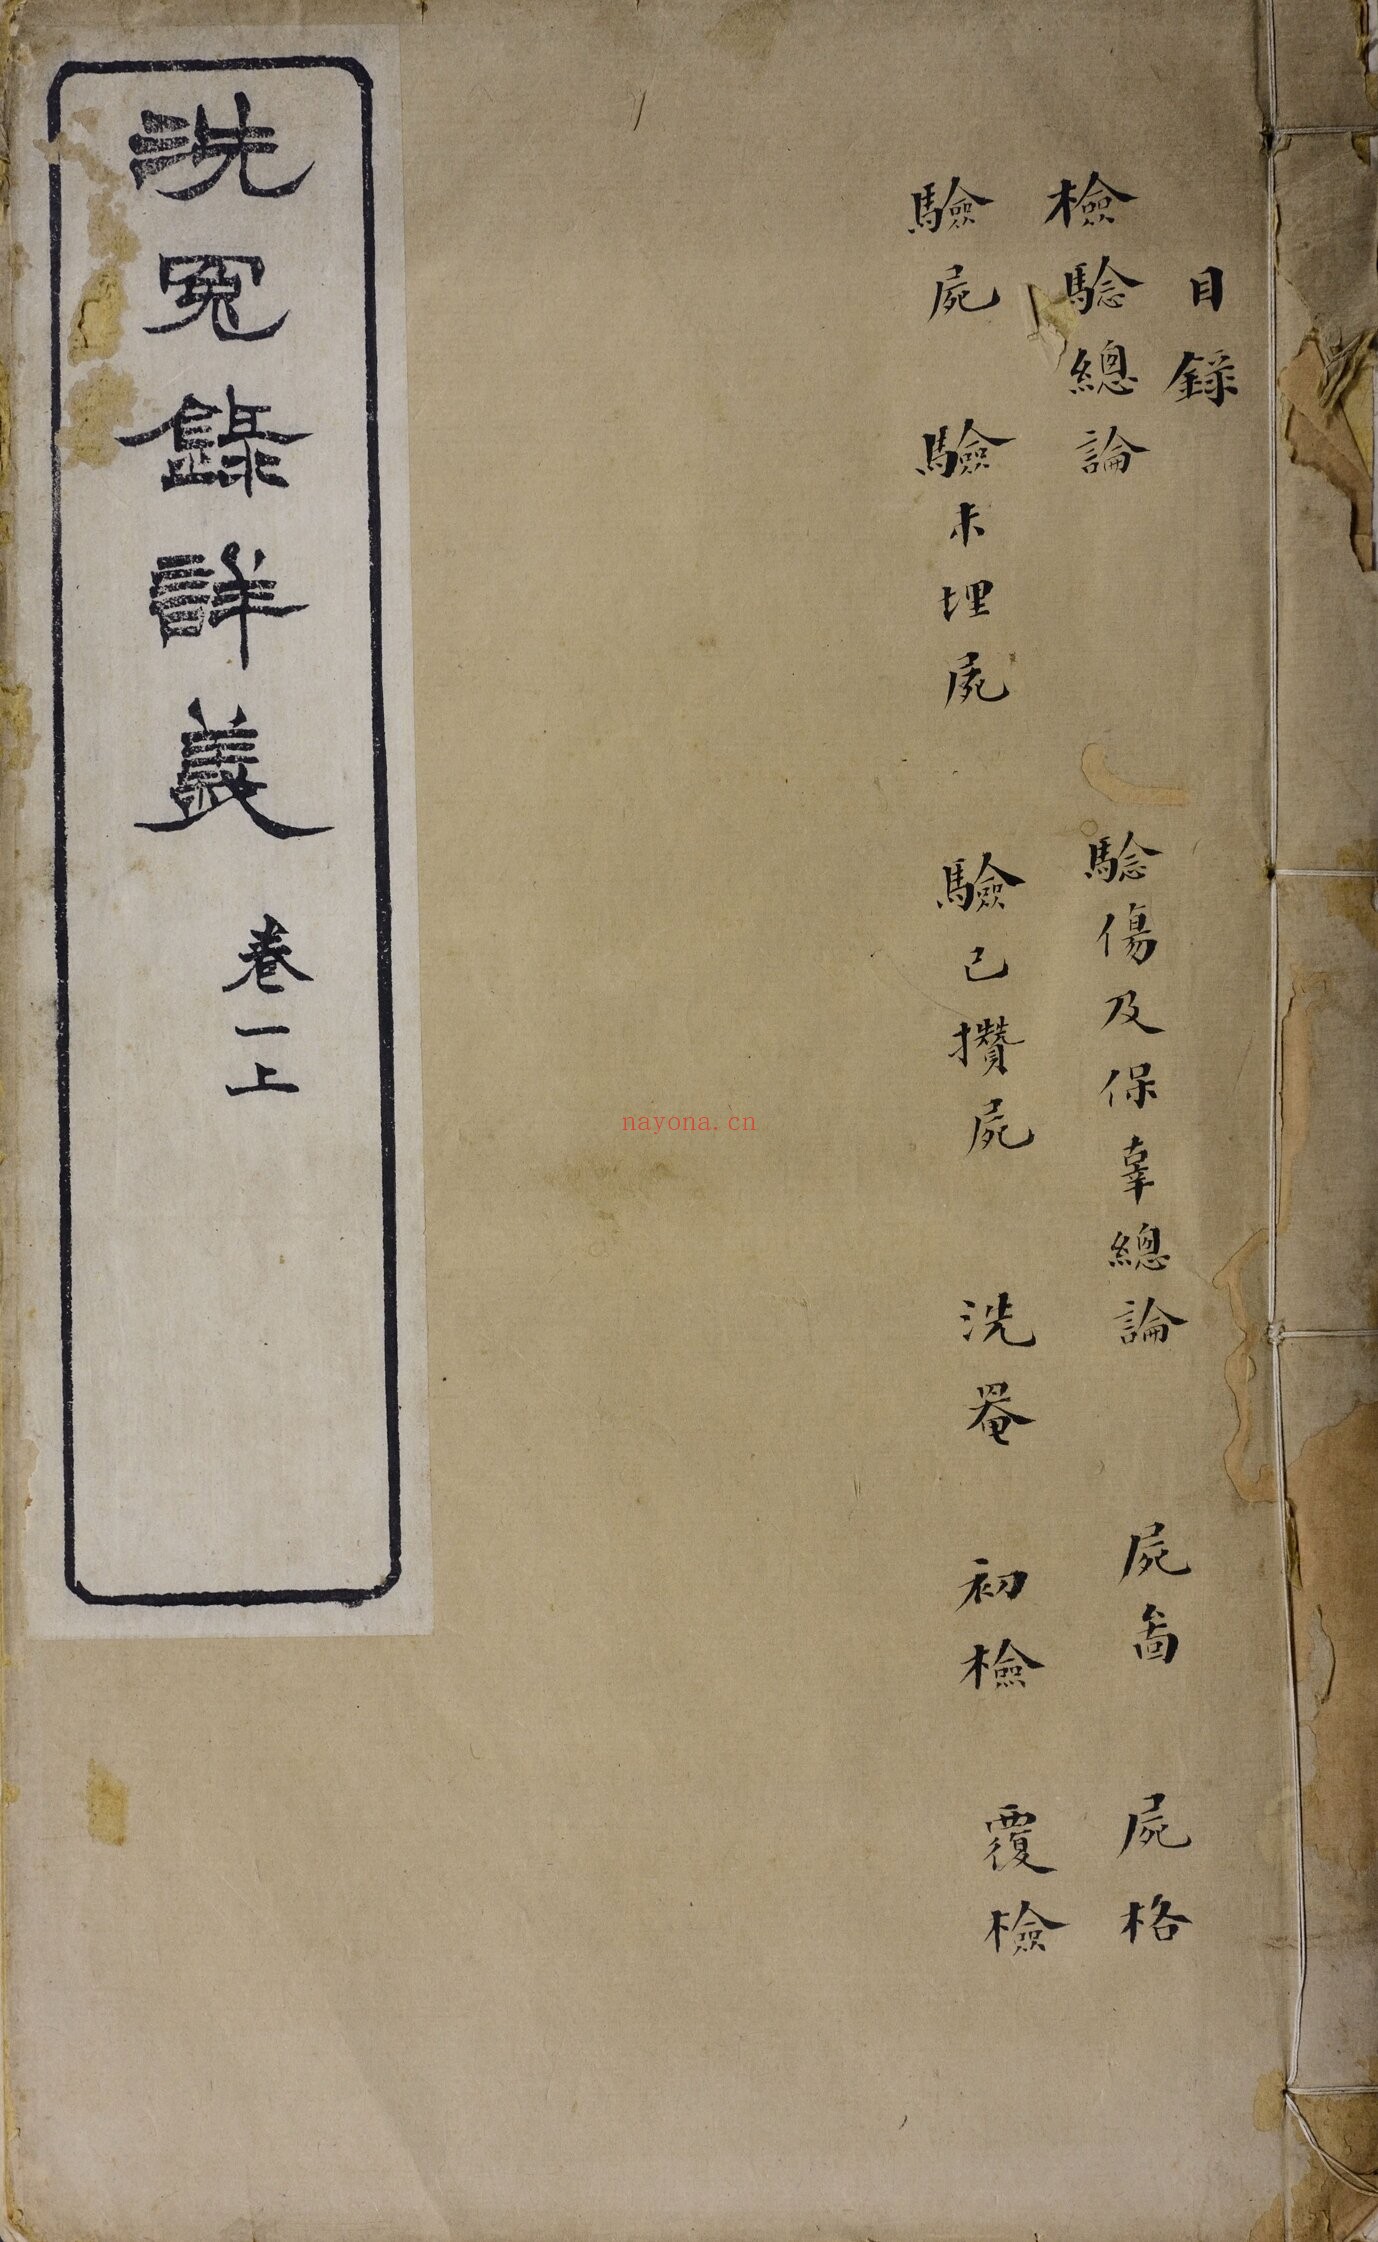 目錄
檢驗總論 驗傷及保辜總論 屍圖 屍格
驗屍 驗未埋屍 驗已攢屍 洗罨 初檢 覆檢
洗冤錄詳義 卷一上
nayona.cn